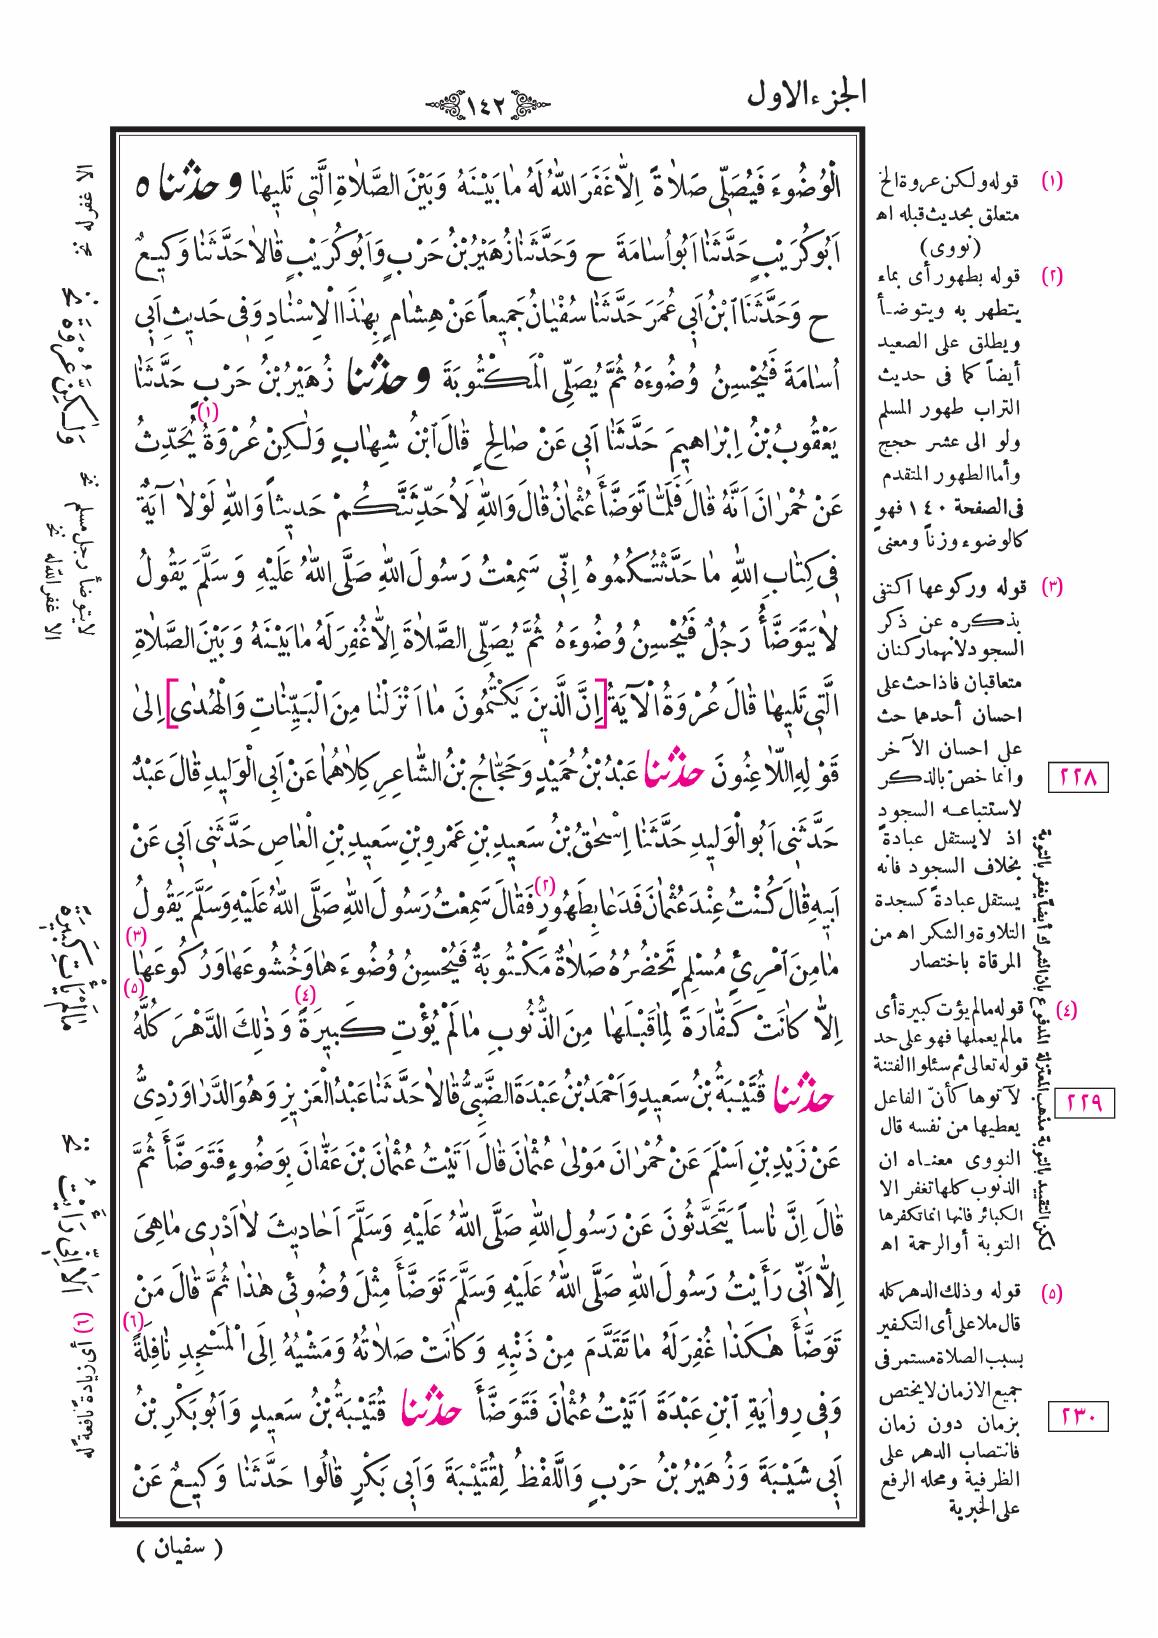 الجزء الاول
١٤٢
الْوُضُوءَ فَيُصَلّى صَلاٰةً اِلاّٰ غَفَرَ اللهُ لَهُ مٰا بَيْنَهُ وَبَيْنَ الصَّلاٰةِ الَّتى تَليهٰا و حدثنا ٥
اَبُوكُرَيْبٍ حَدَّثَنٰا اَبُواُسٰامَةَ ح وَحَدَّثَنٰا زُهَيْرُ بْنُ حَرْبٍ وَاَبُوكُرَيْبٍ قٰالاٰ حَدَّثَنٰا وَكيعٌ
ح وَحَدَّثَنَا ابْنُ اَبى عُمَرَ حَدَّثَنٰا سُفْيٰانُ جَميعاً عَنْ هِشٰامٍ بِهٰذَا الْاِسْنٰادِ وَفى حَديثِ اَبى
اُسٰامَةَ فَيُحْسِنُ وُضُوءَهُ ثُمَّ يُصَلِّى الْمَكْتُوبَةَ و حدثنا زُهَيْرُ بْنُ حَرْبٍ حَدَّثَنٰا
يَعْقُوبُ بْنُ اِبْرٰاهيمَ حَدَّثَنٰا اَبى عَنْ صٰالِحٍ قٰالَ ابْنُ شِهٰابٍ وَلٰكِنْ عُرْوَةُ (١) يُحَدِّثُ
عَنْ حُمْرٰانَ اَنَّهُ قٰالَ فَلَمّٰا تَوَضَّأَ عُثْمٰانُ قٰالَ وَاللهِ لَاُحَدِّثَنَّكُمْ حَديثاً وَاللهِ لَوْلاٰ آيَةٌ
فى كِتٰابِ اللهِ مٰا حَدَّثْتُكُمُوهُ اِنّى سَمِعْتُ رَسُولَ اللهِ صَلَّى اللهُ عَلَيْهِ وَسَلَّمَ يَقُولُ
لاٰ يَتَوَضَّأُ رَجُلٌ فَيُحْسِنُ وُضُوءَهُ ثُمَّ يُصَلِّى الصَّلاٰةَ اِلاّٰ غُفِرَ لَهُ مٰا بَيْنَهُ وَبَيْنَ الصَّلاٰةِ
الَّتى تَليهٰا قٰالَ عُرْوَةُ الْآيَةُ [اِنَّ الَّذينَ يَكْتُمُونَ مٰا اَنْزَلْنٰا مِنَ الْبَيِّنٰاتِ وَالْهُدٰى] اِلىٰ
قَوْلِهِ اللّاٰعِنُونَ حدثنا عَبْدُ بْنُ حُمَيْدٍ وَحَجّٰاجُ بْنُ الشّٰاعِرِ كِلاٰهُمٰا عَنْ اَبِى الْوَليدِ قٰالَ عَبْدٌ
حَدَّثَنى اَبُو الْوَليدِ حَدَّثَنٰا اِسْحٰقُ بْنُ سَعيدِ بْنِ عَمْرِو بْنِ سَعيدِ بْنِ الْعٰاصِ حَدَّثَنى اَبى عَنْ
اَبيهِ قٰالَ كُنْتُ عِنْدَ عُثْمٰانَ فَدَعٰا بِطَهُورٍ (٢) فَقٰالَ سَمِعْتُ رَسُولَ اللهِ صَلَّى اللهُ عَلَيْهِ وَسَلَّمَ يَقُولُ
مٰا مِنَ امْرِئٍ مُسْلِمٍ تَحْضُرُهُ صَلاٰةٌ مَكْتُوبَةٌ فَيُحْسِنُ وُضُوءَهٰا وَخُشُوعَهٰا وَرُكُوعَهٰا (٣)
اِلاّٰ كٰانَتْ كَفّٰارَةً لِمٰا قَبْلَهٰا مِنَ الذُّنُوبِ مٰا لَمْ يُؤْتِ كَبيرَةً (٤) وَذٰلِكَ الدَّهْرَ كُلَّهُ (٥)
حدثنا قُتَيْبَةُ بْنُ سَعيدٍ وَاَحْمَدُ بْنُ عَبْدَةَ الضَّبِّىُّ قٰالاٰ حَدَّثَنٰا عَبْدُ الْعَزيزِ وَهُوَ الدَّرٰاوَرْدِىُّ
عَنْ زَيْدِ بْنِ اَسْلَمَ عَنْ حُمْرٰانَ مَوْلىٰ عُثْمٰانَ قٰالَ اَتَيْتُ عُثْمٰانَ بْنَ عَفّٰانَ بِوَضُوءٍ فَتَوَضَّأَ ثُمَّ
قٰالَ اِنَّ نٰاساً يَتَحَدَّثُونَ عَنْ رَسُولِ اللهِ صَلَّى اللهُ عَلَيْهِ وَسَلَّمَ اَحٰاديثَ لاٰ اَدْرى مٰا هِىَ
اِلاّٰ اَنّى رَأَيْتُ رَسُولَ اللهِ صَلَّى اللهُ عَلَيْهِ وَسَلَّمَ تَوَضَّأَ مِثْلَ وُضُوئى هٰذٰا ثُمَّ قٰالَ مَنْ
تَوَضَّأَ هٰكَذٰا غُفِرَ لَهُ مٰا تَقَدَّمَ مِنْ ذَنْبِهِ وَكٰانَتْ صَلاٰتُهُ وَمَشْيُهُ اِلَى الْمَسْجِدِ نٰافِلَةً (٦)
وَفى رِوٰايَةِ ابْنِ عَبْدَةَ اَتَيْتُ عُثْمٰانَ فَتَوَضَّأَ حدثنا قُتَيْبَةُ بْنُ سَعيدٍ وَاَبُو بَكْرِ بْنُ
اَبى شَيْبَةَ وَزُهَيْرُ بْنُ حَرْبٍ وَاللَّفْظُ لِقُتَيْبَةَ وَاَبى بَكْرٍ قٰالُوا حَدَّثَنٰا وَكيعٌ عَنْ
( سفيان )
(١) قوله ولكن عروة الخ
متعلق بحديث قبله اه
(نووى)
(٢) قوله بطهور أى بماء
يتطهر به ويتوضأ
ويطلق على الصعيد
أيضاً كما فى حديث
التراب طهور المسلم
ولو الى عشر حجج
وأما الطهور المتقدم
فى الصفحة ١٤٠ فهو
كالوضوء وزناً ومعنى
(٣) قوله وركوعها اكتفى
بذكره عن ذكر
السجود لانهما ركنان
متعاقبان فاذا حث على
احسان أحدهما حث
على احسان الآخر
وانما خص بالذكر
لاستتباعه السجود
اذ لا يستقل عبادة
بخلاف السجود فانه
يستقل عبادة كسجدة
التلاوة والشكر اه من
المرقاة باختصار
(٤) قوله مالم يؤت كبيرة أى
مالم يعملها فهو على حد
قوله تعالى ثم سئلوا الفتنة
لآتوها كأنّ الفاعل
يعطيها من نفسه قال
النووى معناه ان
الذنوب كلها تغفر الا
الكبائر فانها انما تكفرها
التوبة أو الرحمة اه
(٥) قوله وذلك الدهر كله
قال ملا على أى التكفير
بسبب الصلاة مستمر فى
جميع الازمان لا يختص
بزمان دون زمان
فانتصاب الدهر على
الظرفية ومحله الرفع
على الخبرية
٢٢٨
٢٢٩
٢٣٠
لكن التقييد بالتوبة مذهب المعتزلة المدفوع بان الشرك أيضاً يغفر بالتوبة
الا غفرله نخ
وَلٰكِنَّ عُرْوَةَ نخ
لا يتوضأ رجل مسلم نخ
الا غفر الله له نخ
مٰا لَمْ يَأْتِ كَبيرَةً
اَلاٰ اِنّى رَأَيْتُ نخ
(٦) أى زيادة نافعة له